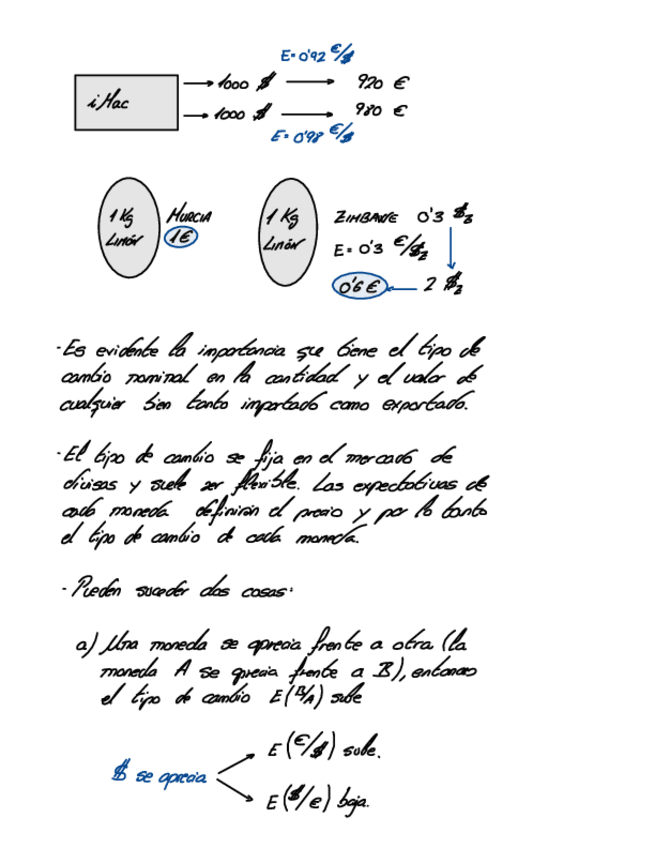 E=0'92 €/$
iMac → 1000 $ → 920 €
→ 1000 $ → 980 €
E=0'98 €/$
1 Kg Limón MURCIA 1€
1 Kg Limón ZIMBAWE 0'3 $z
E=0'3 €/$z
0'6 € ← 2 $z
· Es evidente la importancia que tiene el tipo de
cambio nominal en la cantidad y el valor de
cualquier bien tanto importado como exportado.
· El tipo de cambio se fija en el mercado de
divisas y suele ser flexible. Las expectativas de
cada moneda definirán el precio y por lo tanto
el tipo de cambio de cada moneda.
· Pueden suceder dos cosas:
a) Una moneda se aprecia frente a otra (la
moneda A se aprecia frente a B), entonces
el tipo de cambio E(B/A) sube
E(€/$) sube.
$ se aprecia
E($/€) baja.